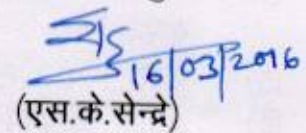 16/03/2016
(एस.के.सेन्द्रे)